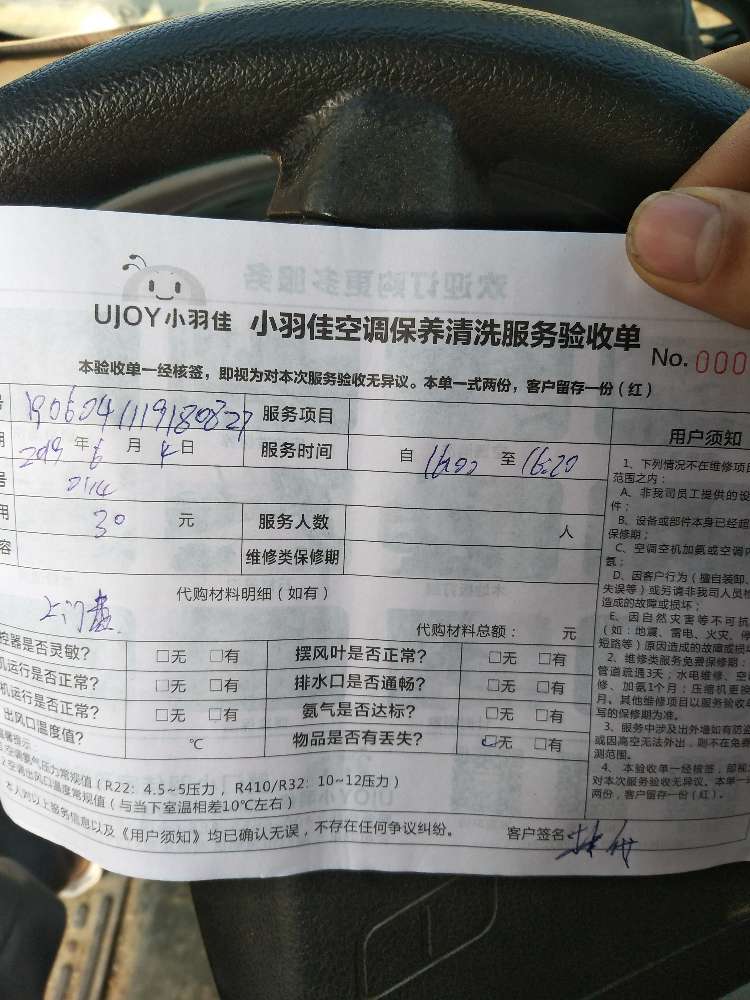 欢迎订购更多服务
UJOY小羽佳 小羽佳空调保养清洗服务验收单 No. 000
本验收单一经核签，即视为对本次服务验收无异议。本单一式两份，客户留存一份（红）
号 1906041119180827 服务项目 用户须知
期 2019 年 6 月 4 日 服务时间 自 16:00 至 16:20
号 0114
用 30 元 服务人数 人
容 维修类保修期
代购材料明细（如有）
上门费
代购材料总额： 元
控器是否灵敏？ □无 □有 摆风叶是否正常？ □无 □有
机运行是否正常？ □无 □有 排水口是否通畅？ □无 □有
机运行是否正常？ □无 □有 氨气是否达标？ □无 □有
出风口温度值？ ℃ 物品是否有丢失？ □无 □有
温馨提示
空调氨气压力常规值（R22：4.5~5压力，R410/R32：10~12压力）
空调出风口温度常规值（与当下室温相差10℃左右）
本人对以上服务信息以及《用户须知》均已确认无误，不存在任何争议纠纷。 客户签名
1、下列情况不在维修项目
范围之内：
A、非我司员工提供的设
件；
B、设备或部件本身已经超
保修期；
C、空调空机加氨或空调内
氨；
D、因客户行为（擅自装卸、
失误等）或另请非我司人员检
造成的故障或损坏；
E、因自然灾害等不可抗
（如：地震、雷电、火灾、停
短路等）原因造成的故障或损坏
2、维修类服务免费保修期：
管道疏通3天；水电维修、空
修、加氨1个月；压缩机更换
月。其他维修项目以服务验收单
写的保修期为准。
3、服务中涉及出外墙如有防盗
或因高空无法外出，则不在免费
测范围。
4、本验收单一经核签，即视
对本次服务验收无异议。本单一
两份，客户留存一份（红）。